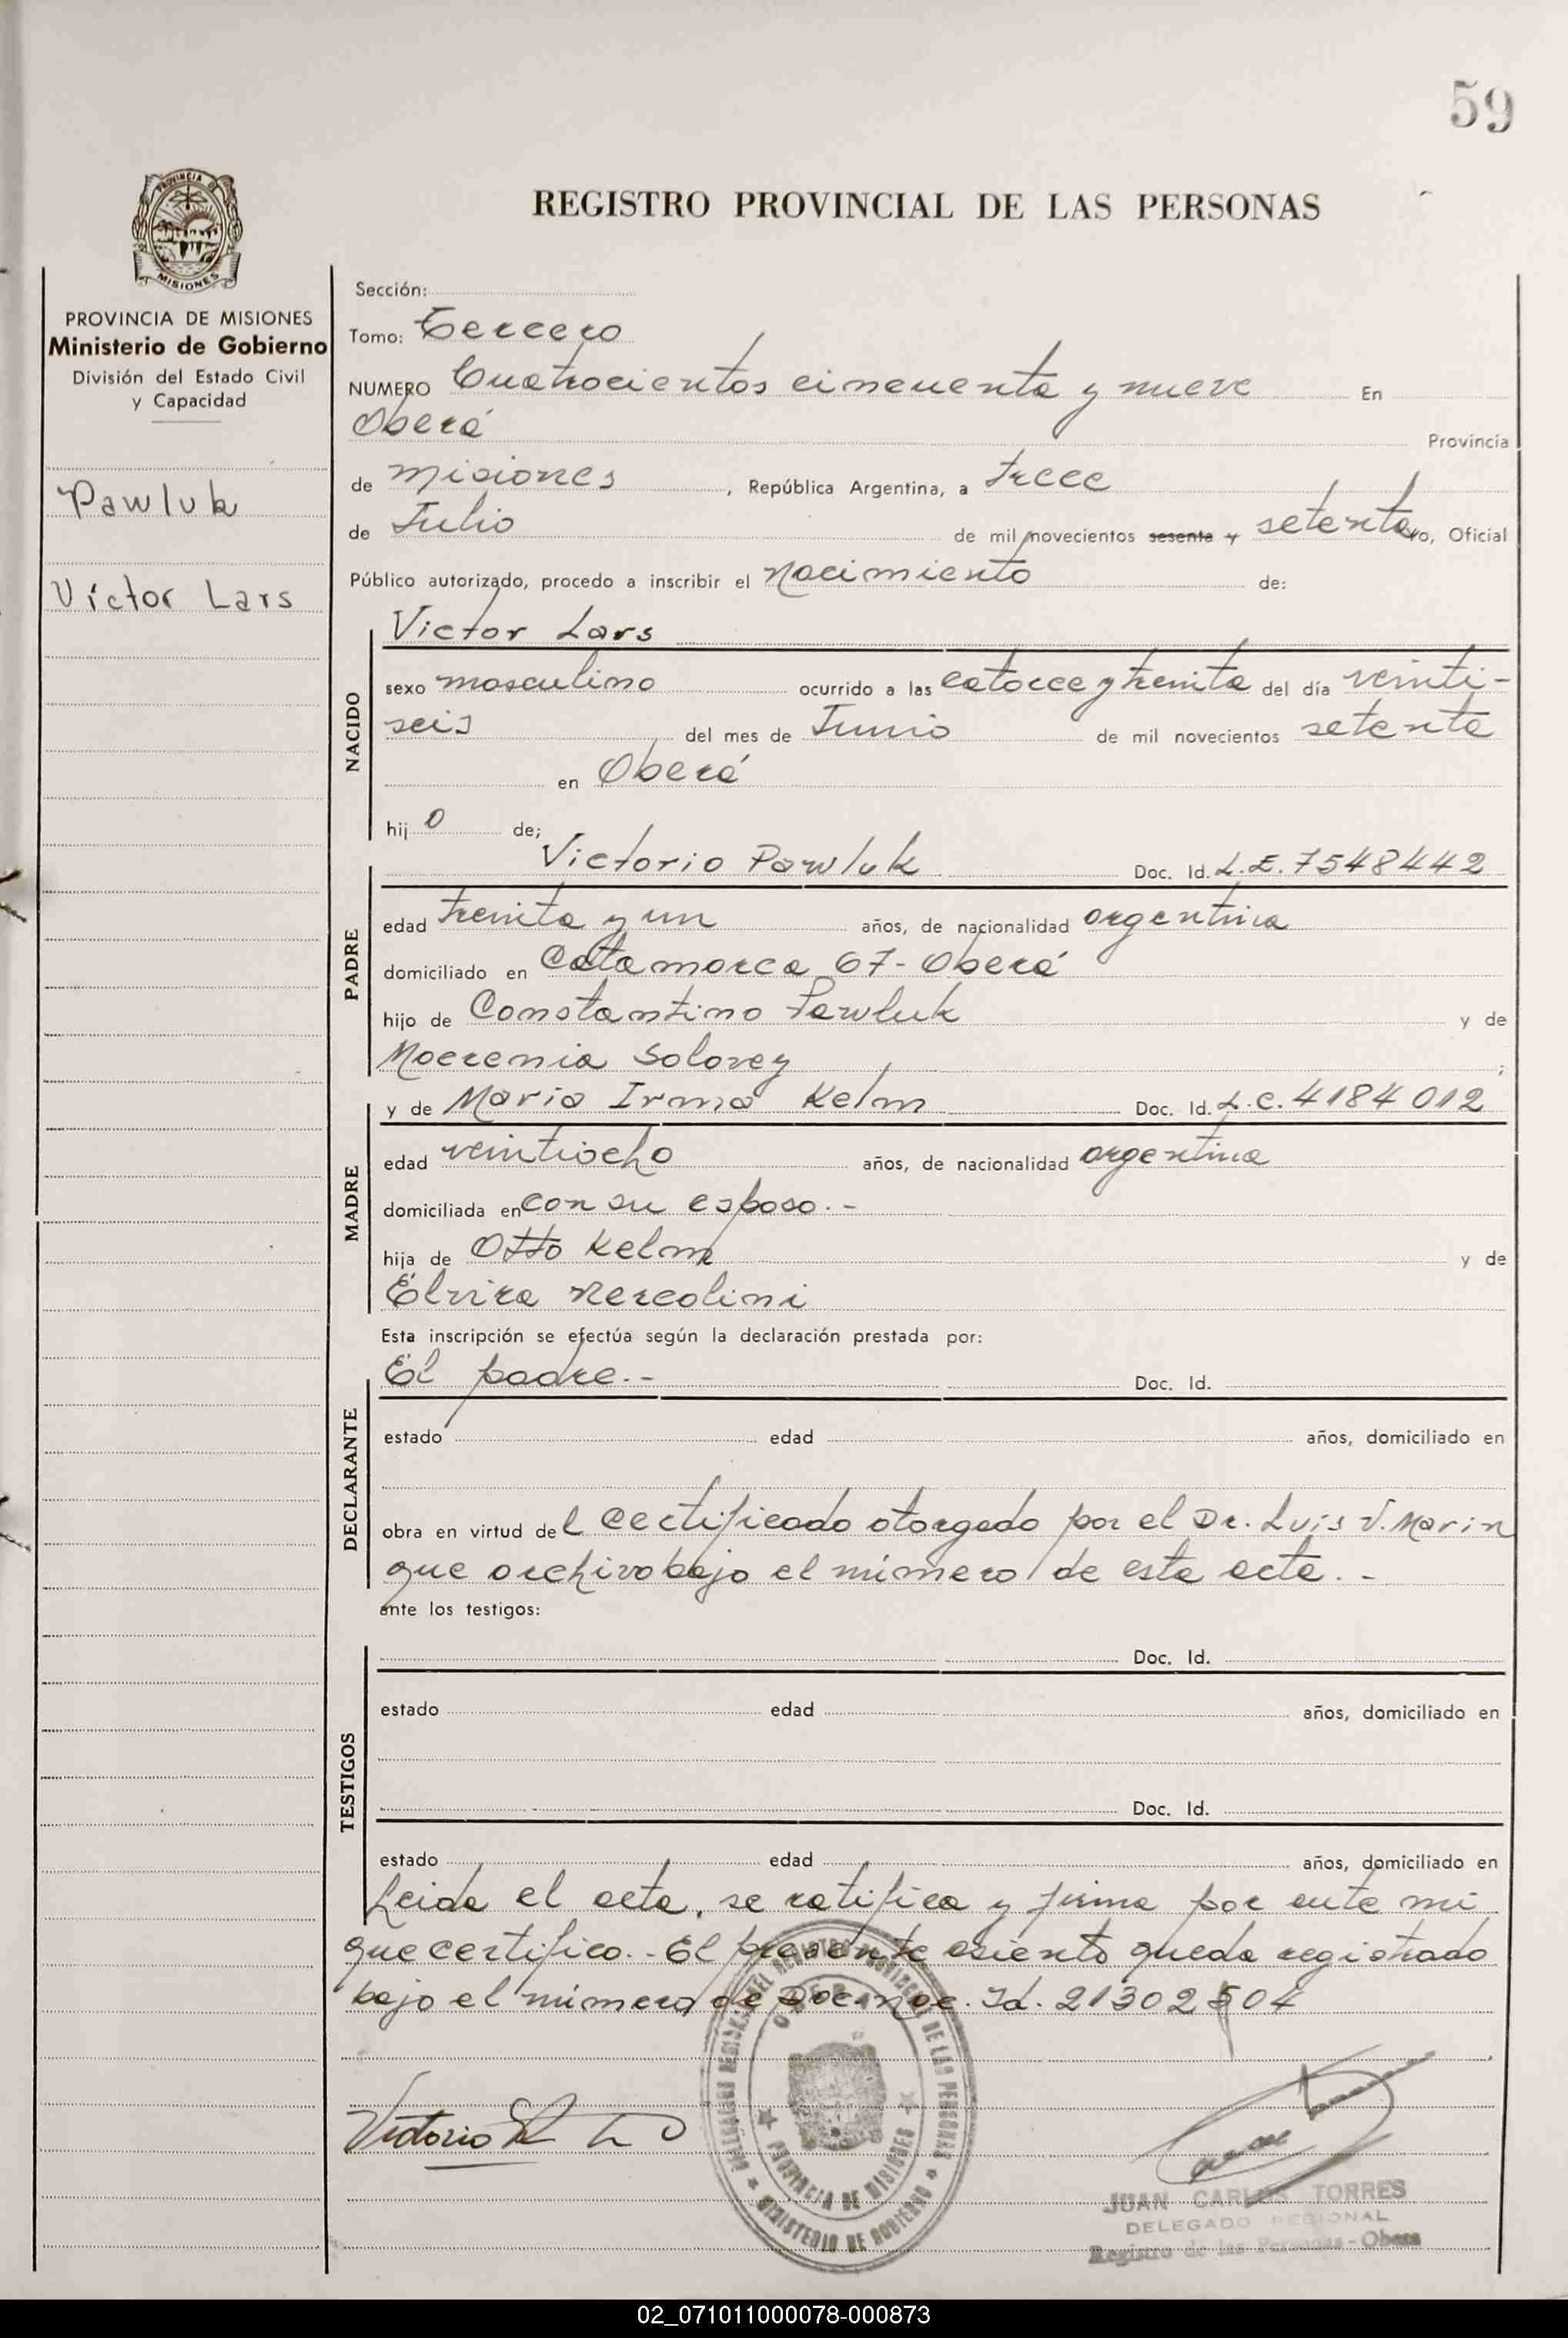 59
REGISTRO PROVINCIAL DE LAS PERSONAS
PROVINCIA DE MISIONES
MISIONES
PROVINCIA DE MISIONES
Ministerio de Gobierno
División del Estado Civil
y Capacidad
Pawluk
Víctor Lars
Sección:
Tomo: Tercero
NUMERO Cuatrocientos cincuenta y nueve En
Oberá Provincia
de Misiones, República Argentina, a trece
de Julio de mil novecientos sesenta y setenta yo, Oficial
Público autorizado, procedo a inscribir el nacimiento de:
NACIDO
Victor Lars
sexo masculino ocurrido a las catorce y treinta del día veinti-
seis del mes de Junio de mil novecientos setenta
en Oberá
hijo de;
PADRE
Victorio Pawluk Doc. Id. L.E. 7548442
edad treinta y un años, de nacionalidad argentina
domiciliado en Catamarca 67 - Oberá
hijo de Constantino Pawluk y de
Solovey;
MADRE
y de Maria Irma Kelm Doc. Id. L.C. 4184012
edad veintiocho años, de nacionalidad argentina
domiciliada en con su esposo.-
hija de Otto Kelm y de
Elvira Nercolini
Esta inscripción se efectúa según la declaración prestada por:
DECLARANTE
El padre.- Doc. Id.
estado edad años, domiciliado en
obra en virtud del certificado otorgado por el Dr. Luis V. Marin
que archivo bajo el número de esta acta.-
ante los testigos:
TESTIGOS
Doc. Id.
estado edad años, domiciliado en
Doc. Id.
estado edad años, domiciliado en
Leida el acta, se ratifica y firma por ante mi
que certifico.- El presente asiento queda registrado
bajo el número de Doc. Id. 21302504
Victorio
PROVINCIA DE MISIONES
MINISTERIO DE GOBIERNO
JUAN CARLOS TORRES
DELEGADO REGIONAL
Registro de las Personas - Obera
02_071011000078-000873